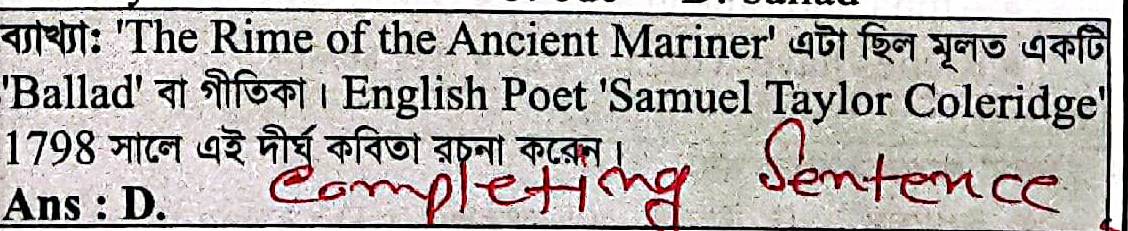 ব্যাখ্যা: 'The Rime of the Ancient Mariner' এটা ছিল মূলত একটি
'Ballad' বা গীতিকা। English Poet 'Samuel Taylor Coleridge'
1798 সালে এই দীর্ঘ কবিতা রচনা করেন।
Ans : D.
Completing Sentence